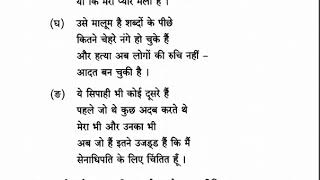 या कि मेरा प्यार मैला है ।
(घ) उसे मालूम है शब्दों के पीछे
कितने चेहरे नंगे हो चुके हैं
और हत्या अब लोगों की रुचि नहीं –
आदत बन चुकी है ।
(ङ) ये सिपाही भी कोई दूसरे हैं
पहले जो थे कुछ अदब करते थे
मेरा भी और उनका भी
अब जो हैं इतने उजड्ड हैं कि मैं
सेनाधिपति के लिए चिंतित हूँ ।